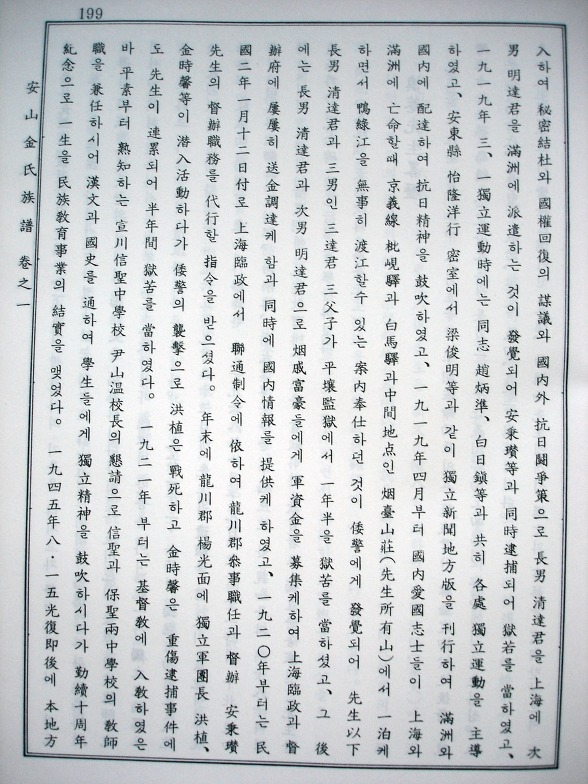 199
入하여 秘密結社와 國權回復의 謀議와 國內外 抗日鬪爭策으로 長男 淸達君을 上海에 次
男 明達君을 滿洲에 派遣하는 것이 發覺되어 安秉瓚等과 同時逮捕되어 獄苦를 當하였고、
一九一九年 三、一獨立運動時에는 同志 趙炳準、白日鎭等과 共히 各處 獨立運動을 主導
하였고、安東縣 怡隆洋行 密室에서 梁俊明等과 같이 獨立新聞地方版을 刊行하여 滿洲와
國內에 配達하여 抗日精神을 鼓吹하였고、一九一九年四月부터 國內愛國志士들이 上海와
滿洲에 亡命할때 京義線 枇峴驛과 白馬驛과中間地点인 烟臺山莊(先生所有山)에서 一泊케
하면서 鴨綠江을 無事히 渡江할수 있는 案內奉仕하던 것이 倭警에게 發覺되어 先生以下
長男 淸達君과 三男인 三達君 三父子가 平壤監獄에서 一年半을 獄苦를 當하셨고、그 後
에는 長男 淸達君과 次男 明達君으로 烟戚富豪들에게 軍資金을 募集케하여 上海臨政과 督
辦府에 屢屢히 送金調達케 함과 同時에 國內情報를 提供케 하였고、一九二〇年부터는 民
國二年一月十二日付로 上海臨政에서 聯通制令에 依하여 龍川郡叅事職任과 督辦 安秉瓚
先生의 督辦職務를 代行할 指令을 받으셨다。 年末에 龍川郡 楊光面에 獨立軍團長 洪植、
金時馨等이 潜入活動하다가 倭警의 襲擊으로 洪植은 戰死하고 金時馨은 重傷逮捕事件에
도 先生이 連累되어 半年間 獄苦를 當하였다。 一九二一年 부터는 基督敎에 入敎하였은
바 平素부터 熟知하는 宣川信聖中學校 尹山溫校長의 懇請으로 信聖과 保聖兩中學校의 敎師
職을 兼任하시어 漢文과 國史를 通하여 學生들에게 獨立精神을 鼓吹하시다가 勤續十周年
紀念으로 一生을 民族敎育事業의 結實을 맺었다。 一九四五年八·一五光復即後에 本地方
安山金氏族譜 卷之一